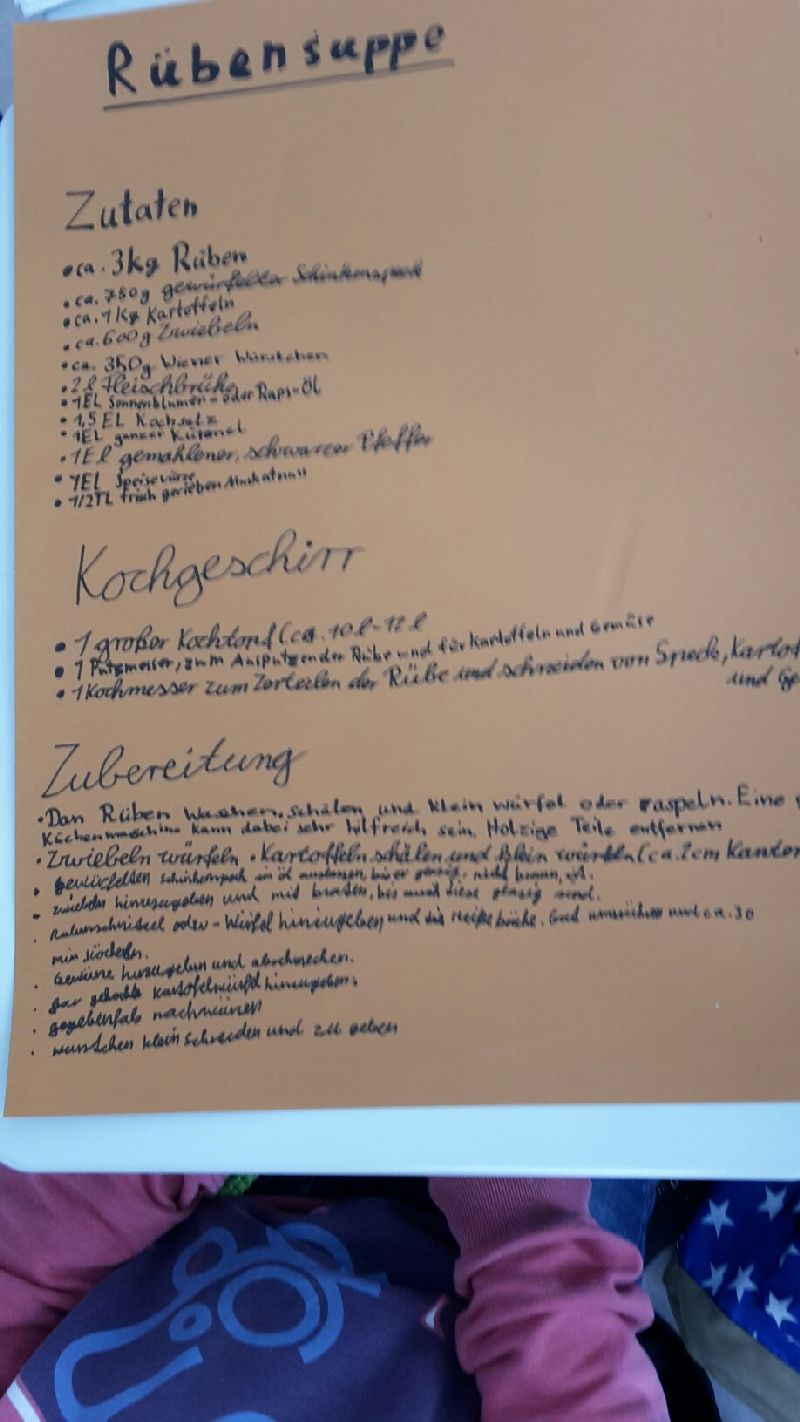 Rübensuppe
Zutaten
• ca. 3kg Rüben
• ca. 750g gewürfelter Schinkenspeck
• ca. 1 Kg Kartoffeln
• ca. 600g Zwiebeln
• ca. 350g Wiener Würstchen
• 2 l Fleischbrühe
• 1EL Sonnenblumen- oder Raps-Öl
• 1,5 EL Kochsalz
• 1EL ganzer Kümmel
• 1El gemahlener, schwarzer Pfeffer
• 1EL Speisewürze
• 1/2TL frisch gerieben Muskatnuss
Kochgeschirr
• 1 großer Kochtopf (ca. 10 l-12 l
• 1 Putzmesser, zum Ausputzen der Rübe und für Kartoffeln und Gemüse
• 1 Kochmesser zum Zerteilen der Rübe und schneiden von Speck, Kartof
und Ge
Zubereitung
• Dan Rüben waschen, schälen und klein würfel oder raspeln. Eine
Küchenmaschine kann dabei sehr hilfreich sein. Holzige Teile entfernen
• Zwiebeln würfeln • Kartoffeln schälen und klein würfeln (ca. 2cm Kanten
• gewürfelten Schinkenspeck in öl auslassen, bis er glasig, nicht braun, ist.
• zwiebeln hinzugeben und mit braten, bis auch diese glasig sind.
• Rübenschnitzel oder - Würfel hinzugeben und die Heiße brühe. Gut umrühren und ca. 30
min köcheln.
• Gewürze hinzugeben und abschmecken.
• gar gekochte kartoffelwürfel hinzugeben.
• gegebenfals nachwürzen
• würstchen klein schneiden und zu geben